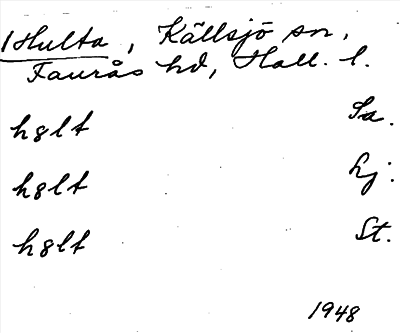 1Hulta, Källsjö sn,
Faurås hd, Hall. l.
hglt Sa.
hglt Lj.
hglt St.
1948